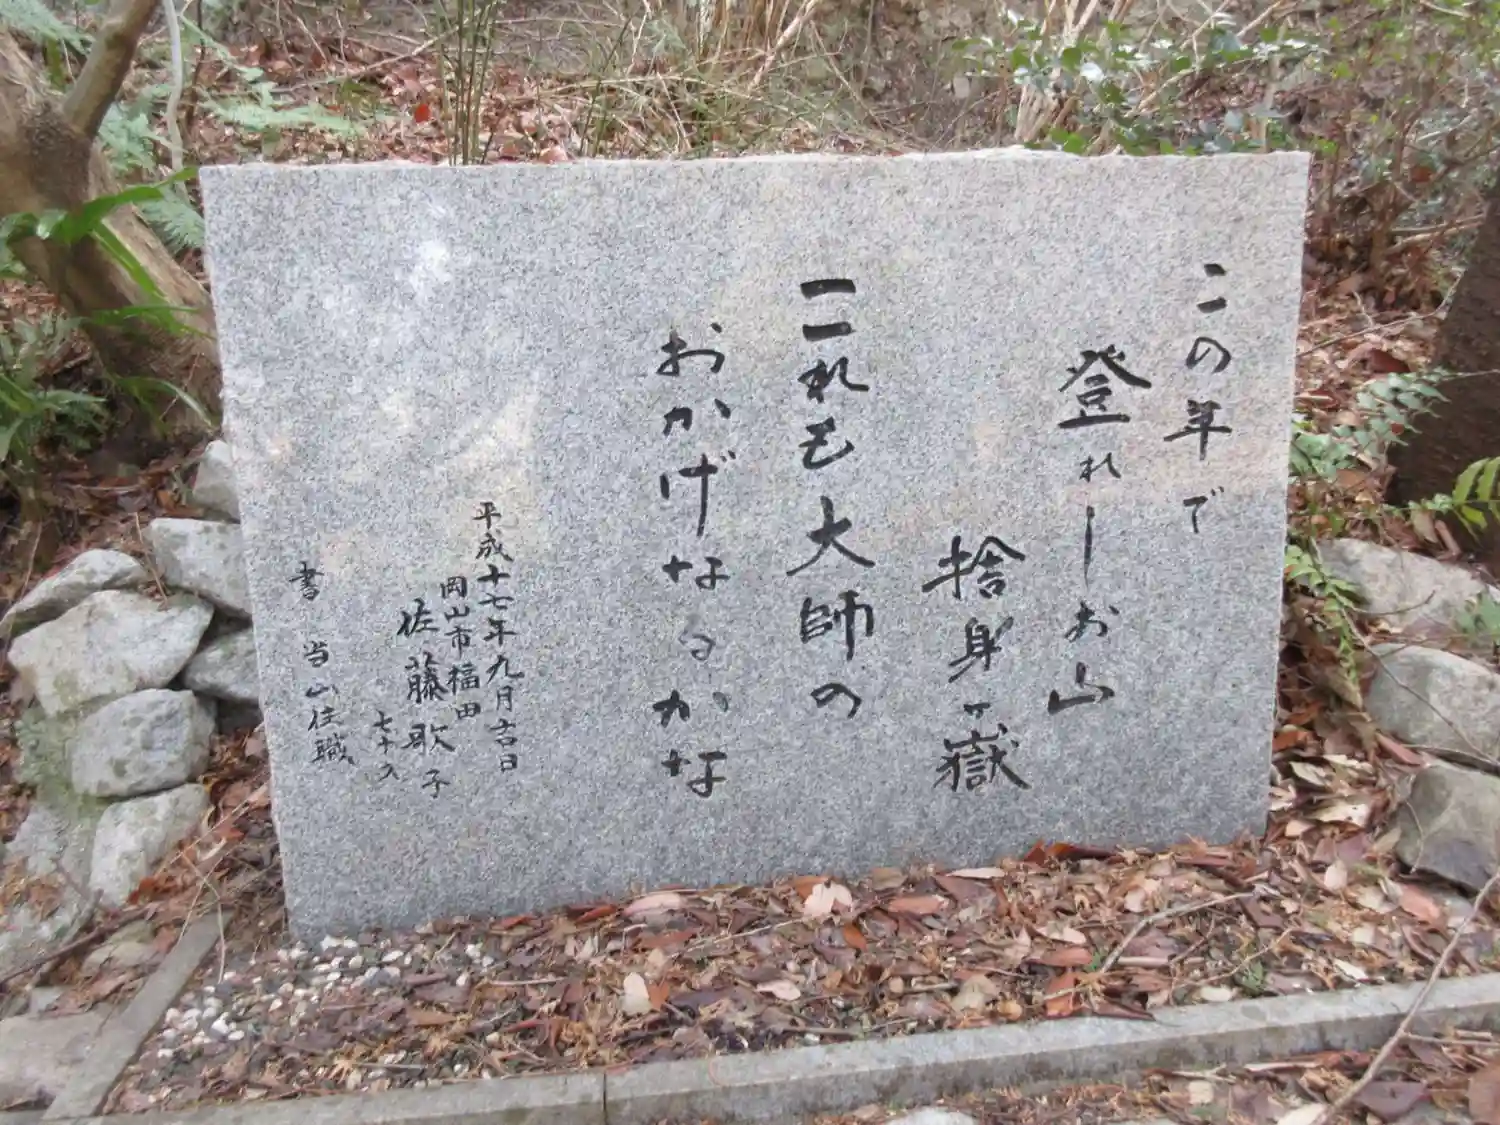 この年で
登れしお山
捨身ヶ嶽
これも大師の
おかげなるかな
平成十七年九月吉日
岡山市福田
佐藤歌子
七十八
書 当山住職